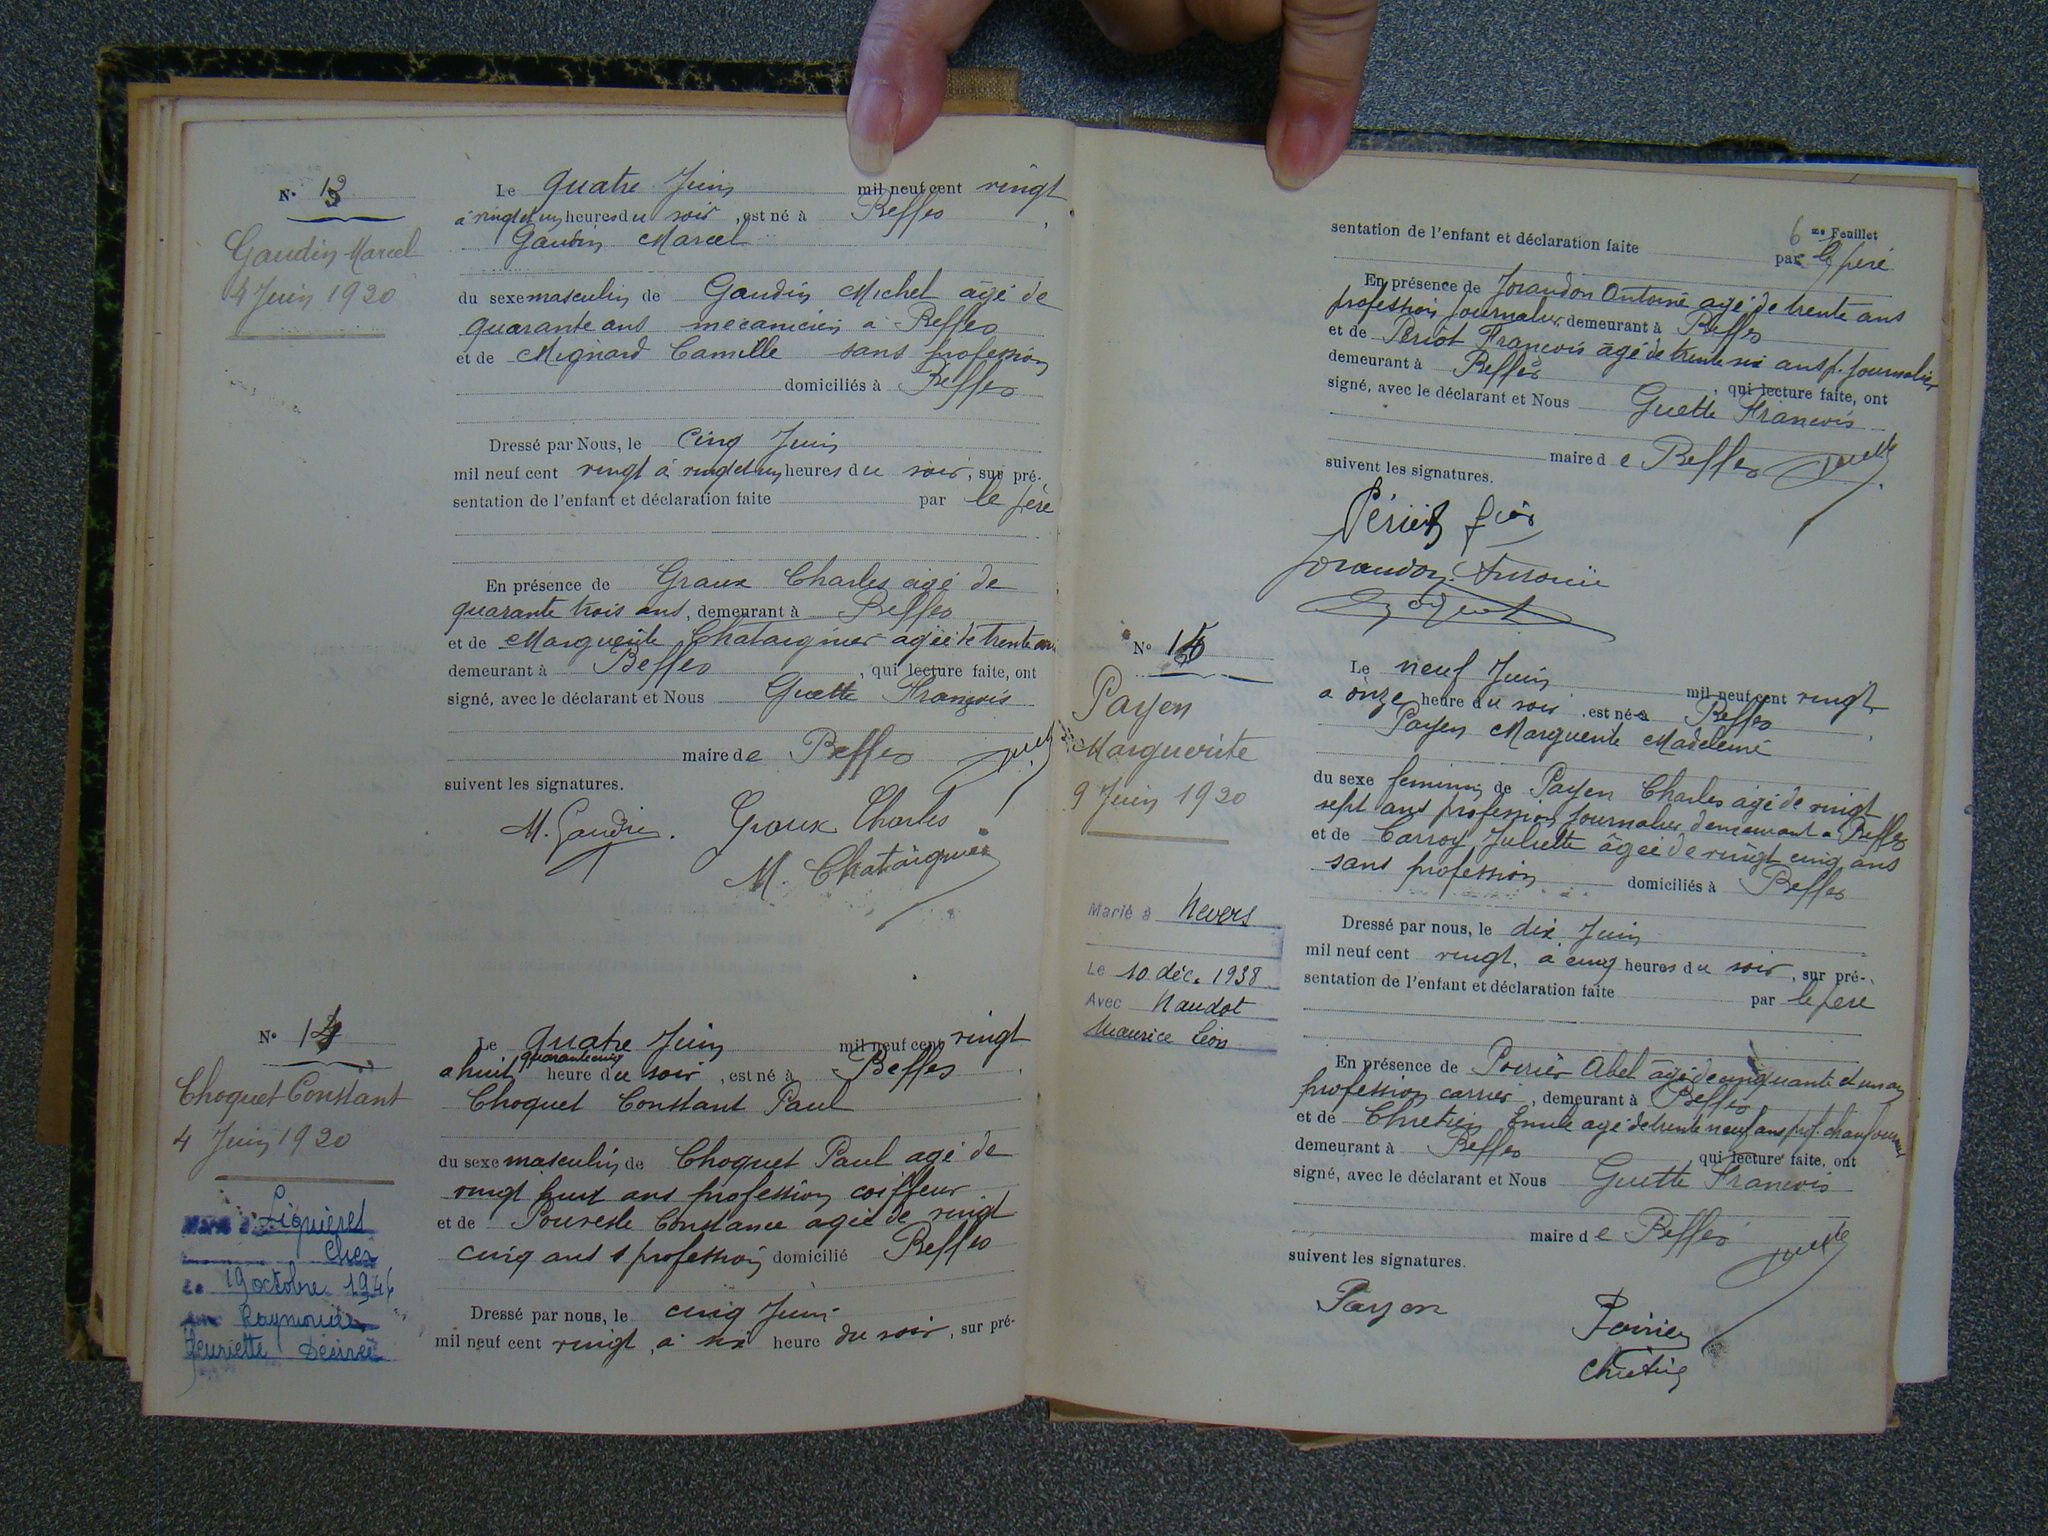 N° 13
Gaudin Marcel
4 Juin 1920
Le quatre Juin mil neuf cent vingt
à vingt et un heures du soir, est né à Beffes
Gaudin Marcel
du sexe masculin de Gaudin Michel âgé de
quarante ans mecanicien à Beffes
et de Mignard Camille sans profession
domiciliés à Beffes
Dressé par Nous, le cinq Juin
mil neuf cent vingt à vingt et un heures du soir, sur pré-
sentation de l'enfant et déclaration faite par le père
En présence de Graux Charles agé de
quarante trois ans, demeurant à Beffes
et de Marguerite Chataignier agée de trente ans
demeurant à Beffes, qui lecture faite, ont
signé, avec le déclarant et Nous Guette François
maire de Beffes
suivent les signatures.
M. Gaudin. Graux Charles
M. Chataignier
N° 14
Choquet Constant
4 Juin 1920
Marié à Lignières
Cher
Le 19 octobre 1946
avec Raymonde
Henriette Désirée
Le quatre Juin mil neuf cent vingt
a huit quarante cinq heure du soir, est né à Beffes
Choquet Constant Paul
du sexe masculin de Choquet Paul agé de
vingt huit ans profession coiffeur
et de Constance agée de vingt
cinq ans s profession domicilié Beffes
Dressé par nous, le cinq Juin
mil neuf cent vingt, à six heure du soir, sur pré-
6 me Feuillet
sentation de l'enfant et déclaration faite par le père
En présence de Jorandon Antoine agé de trente ans
profession Journalier, demeurant à Beffes
et de Périot François âgé de trente six ans p. Journalier
demeurant à Beffes, qui lecture faite, ont
signé, avec le déclarant et Nous Guette François
maire de Beffes
suivent les signatures.
Jorandon Antoine
N° 15
Payen
Marguerite
9 Juin 1920
Marié à Nevers
Le 10 déc. 1938
Avec Naudot
Maurice Léon
Le neuf Juin mil neuf cent vingt
a onze heure du soir, est née à Beffes
Payen Marguerite Madeleine
du sexe feminin de Payen Charles agé de vingt
sept ans profession Journalier demeurant a Beffes
et de Carroy Juliette âgée de vingt cinq ans
sans profession domiciliés à Beffes
Dressé par nous, le dix Juin
mil neuf cent vingt, à cinq heures du soir, sur pré-
sentation de l'enfant et déclaration faite par le pere
En présence de Poirier Abel âgé de cinquante et un an
profession carrier, demeurant à Beffes
et de Chretien Emile agé de trente neuf ans prof. chaufournier
demeurant à Beffes qui lecture faite, ont
signé, avec le déclarant et Nous Guette François
maire de Beffes
suivent les signatures.
Payen Poirier
Chretien